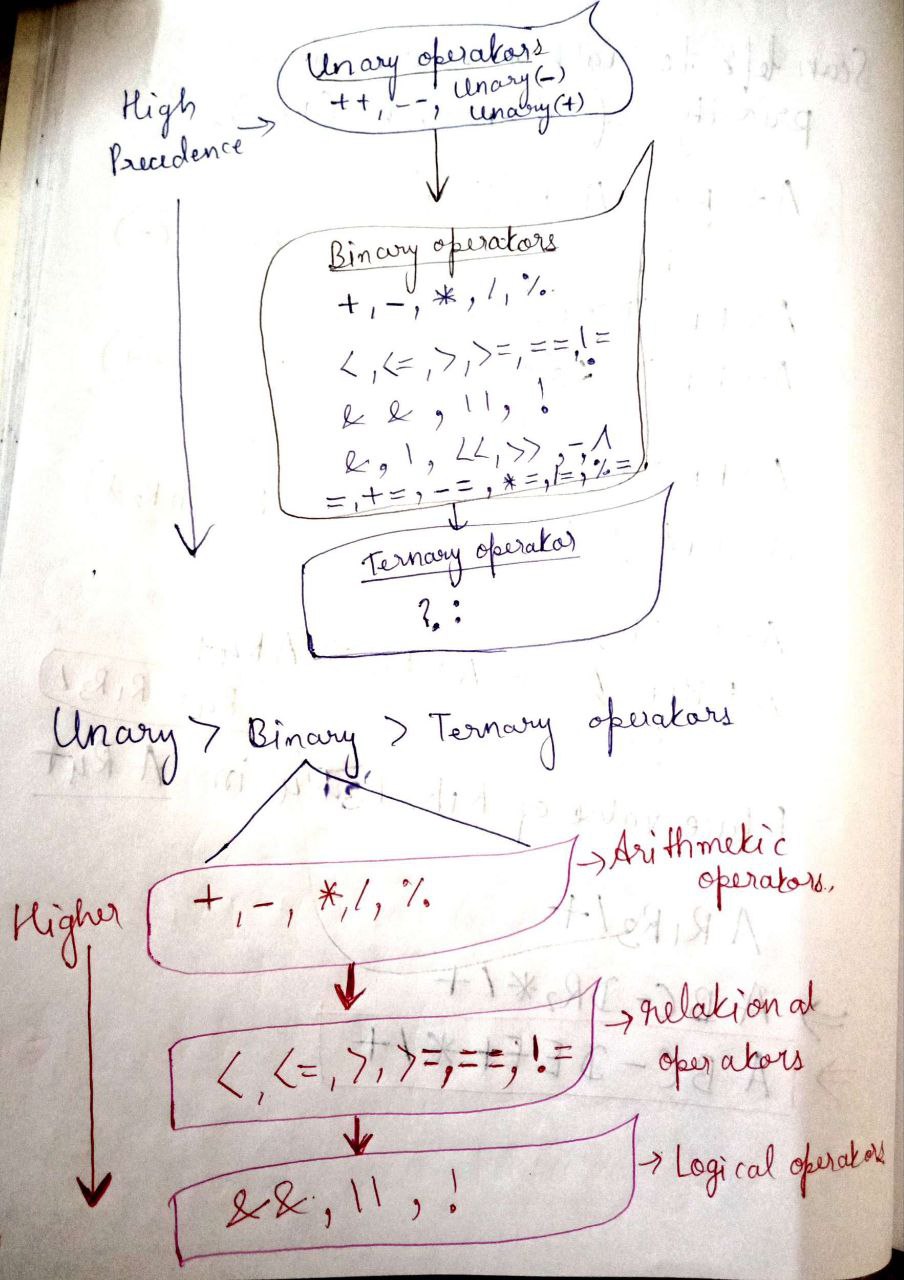 Unary operators
++, --, Unary(-)
Unary(+)
High
Precedence →
Binary operators
+, -, *, /, %.
<, <=, >, >=, ==, !=
& & , ||, !
&, |, <<, >>, -, ^
=, +=, -=, *=, /=, %=
Ternary operator
?, :
Unary > Binary > Ternary operators
+, -, *, /, %.
→ Arithmetic
operators.
Higher
<, <=, >, >=, ==, !=
→ relational
operators
&&, ||, !
→ Logical operators